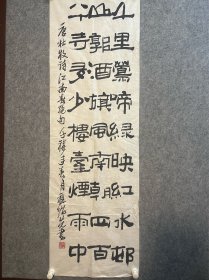 千里鶯啼綠映紅水邨
山郭酒旗風南朝四百
十寺多少樓臺煙雨中
唐杜牧詩江南春絕句